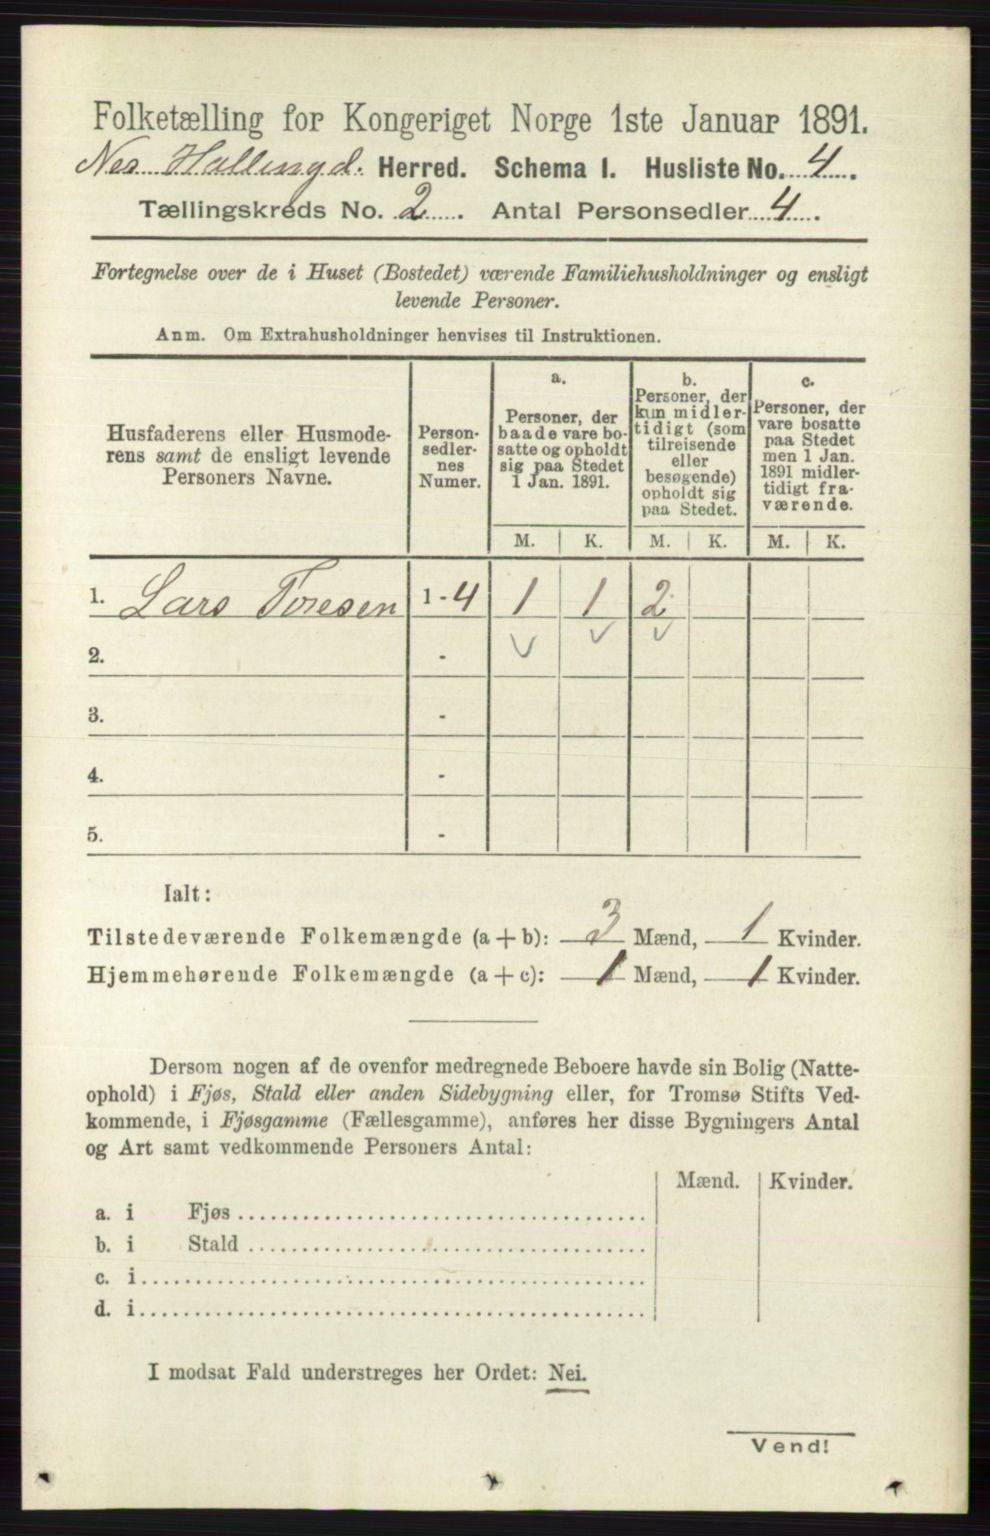 Folketælling for Kongeriget Norge 1ste Januar 1891.
Nes Hallingd. Herred. Schema I. Husliste No. 4.
Tællingskreds No. 2. Antal Personsedler 4.
Fortegnelse over de i Huset (Bostedet) værende Familiehusholdninger og ensligt
levende Personer.
Anm. Om Extrahusholdninger henvises til Instruktionen.
Husfaderens eller Husmode-
rens samt de ensligt levende
Personers Navne.
Person-
sedler-
nes
Numer.
a.
Personer, der
baade vare bo-
satte og opholdt
sig paa Stedet
1 Jan. 1891.
b.
Personer, der
kun midler-
tidigt (som
tilreisende
eller
besøgende)
opholdt sig
paa Stedet.
c.
Personer, der
vare bosatte
paa Stedet
men 1 Jan.
1891 midler-
tidigt fra-
værende.
M. K. M. K. M. K.
1. Lars Toresen 1-4 1 1 2
2. -
3. -
4. -
5. -
Ialt:
Tilstedeværende Folkemængde (a+b): 3 Mænd, 1 Kvinder.
Hjemmehørende Folkemængde (a+c): 1 Mænd, 1 Kvinder.
Dersom nogen af de ovenfor medregnede Beboere havde sin Bolig (Natte-
ophold) i Fjøs, Stald eller anden Sidebygning eller, for Tromsø Stifts Ved-
kommende, i Fjøsgamme (Fællesgamme), anføres her disse Bygningers Antal
og Art samt vedkommende Personers Antal:
Mænd. Kvinder.
a. i Fjøs
b. i Stald
c. i
d. i
I modsat Fald understreges her Ordet: Nei.
Vend!